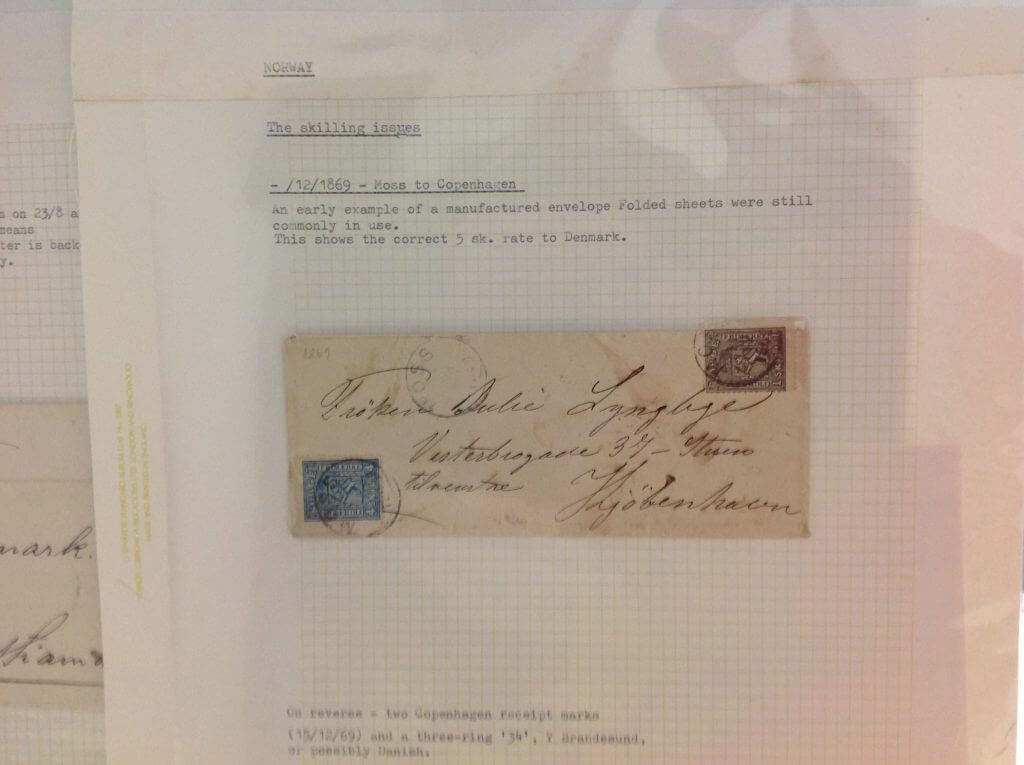 NORWAY
The skilling issues
- /12/1869 - Moss to Copenhagen
An early example of a manufactured envelope Folded sheets were still
commonly in use.
This shows the correct 5 sk. rate to Denmark.
s on 23/8 a
means
ter is back
y.
1869
MOSS
FRIMÆRKE
1 SK
Fröken Julie Lyngbye
Vesterbrogade 37 - Stuen
tilvenstre
Kjöbenhavn
FRIMÆRKE
mark.
On reverse = two Copenhagen receipt marks
(15/12/69) and a three-ring '34', ? Brandesund,
or possibly Danish.